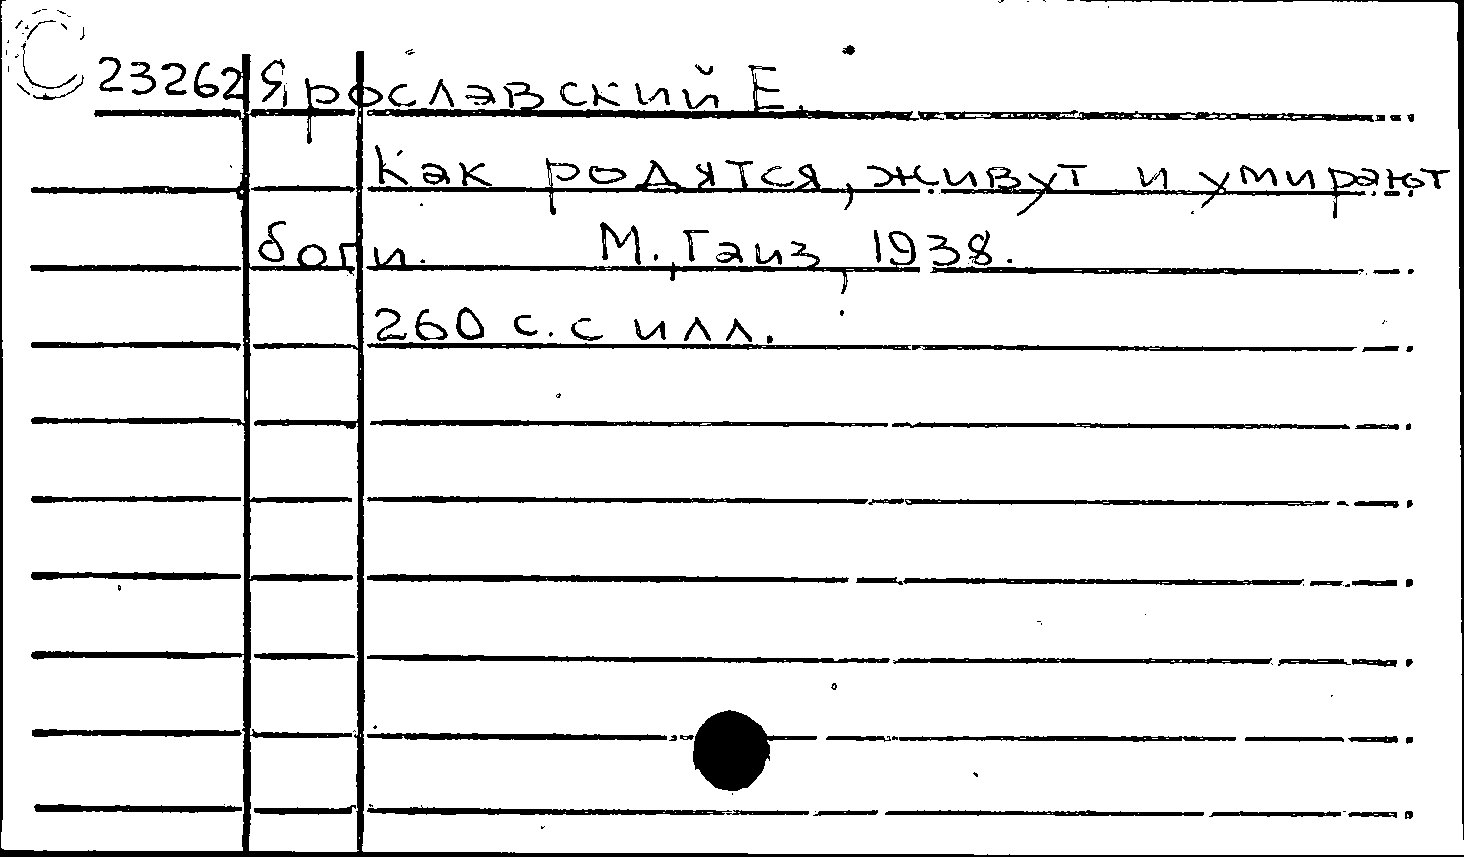 С
23262 Ярославский Е.
Как родятся, живут и умирают
боги. М., Гаиз, 1938.
260 с. с илл.